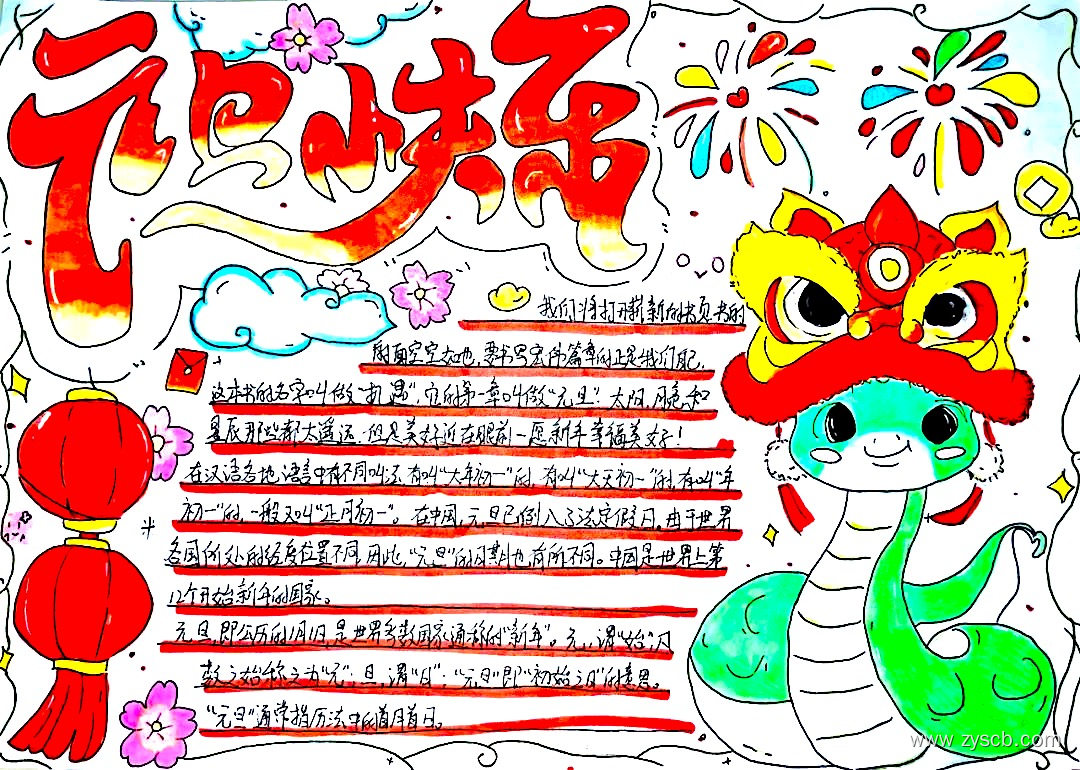 元旦快乐
我们将打开崭新的书页.书的
的面空空如也.要书写宏伟篇章的正是我们自己.
这本书的名字叫做“机遇”,它的第一章叫做“元旦”.太阳.月色和
星辰那些都太遥远.但是美好近在眼前-愿新年幸福美好!
在汉语各地语言中有不同叫法.有叫“大年初一”的,有叫“大天初一”的,有叫“年
初一”的,一般又叫“正月初一”。在中国,元旦已例入了法定假日.由于世界
各国所处的经度位置不同,因此,“元旦”的日期也有所不同。中国是世界上第
12个开始新年的国家。
元旦,即公历的1月1日,是世界多数国家通称的“新年”。元,谓“始”,凡
数之始称之为“元”;旦,谓“日”;“元旦”即“初始之日”的意思。
“元旦”通常指历法中的首月首日。
www.zyscb.com